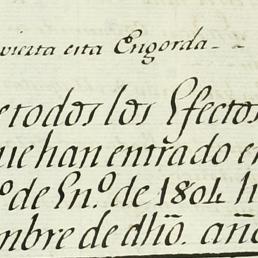 vierta esta Engorda - -
e todos los Efectos
ue han entrado e
º de Enº de 1804 h
mbre de dhõ. año